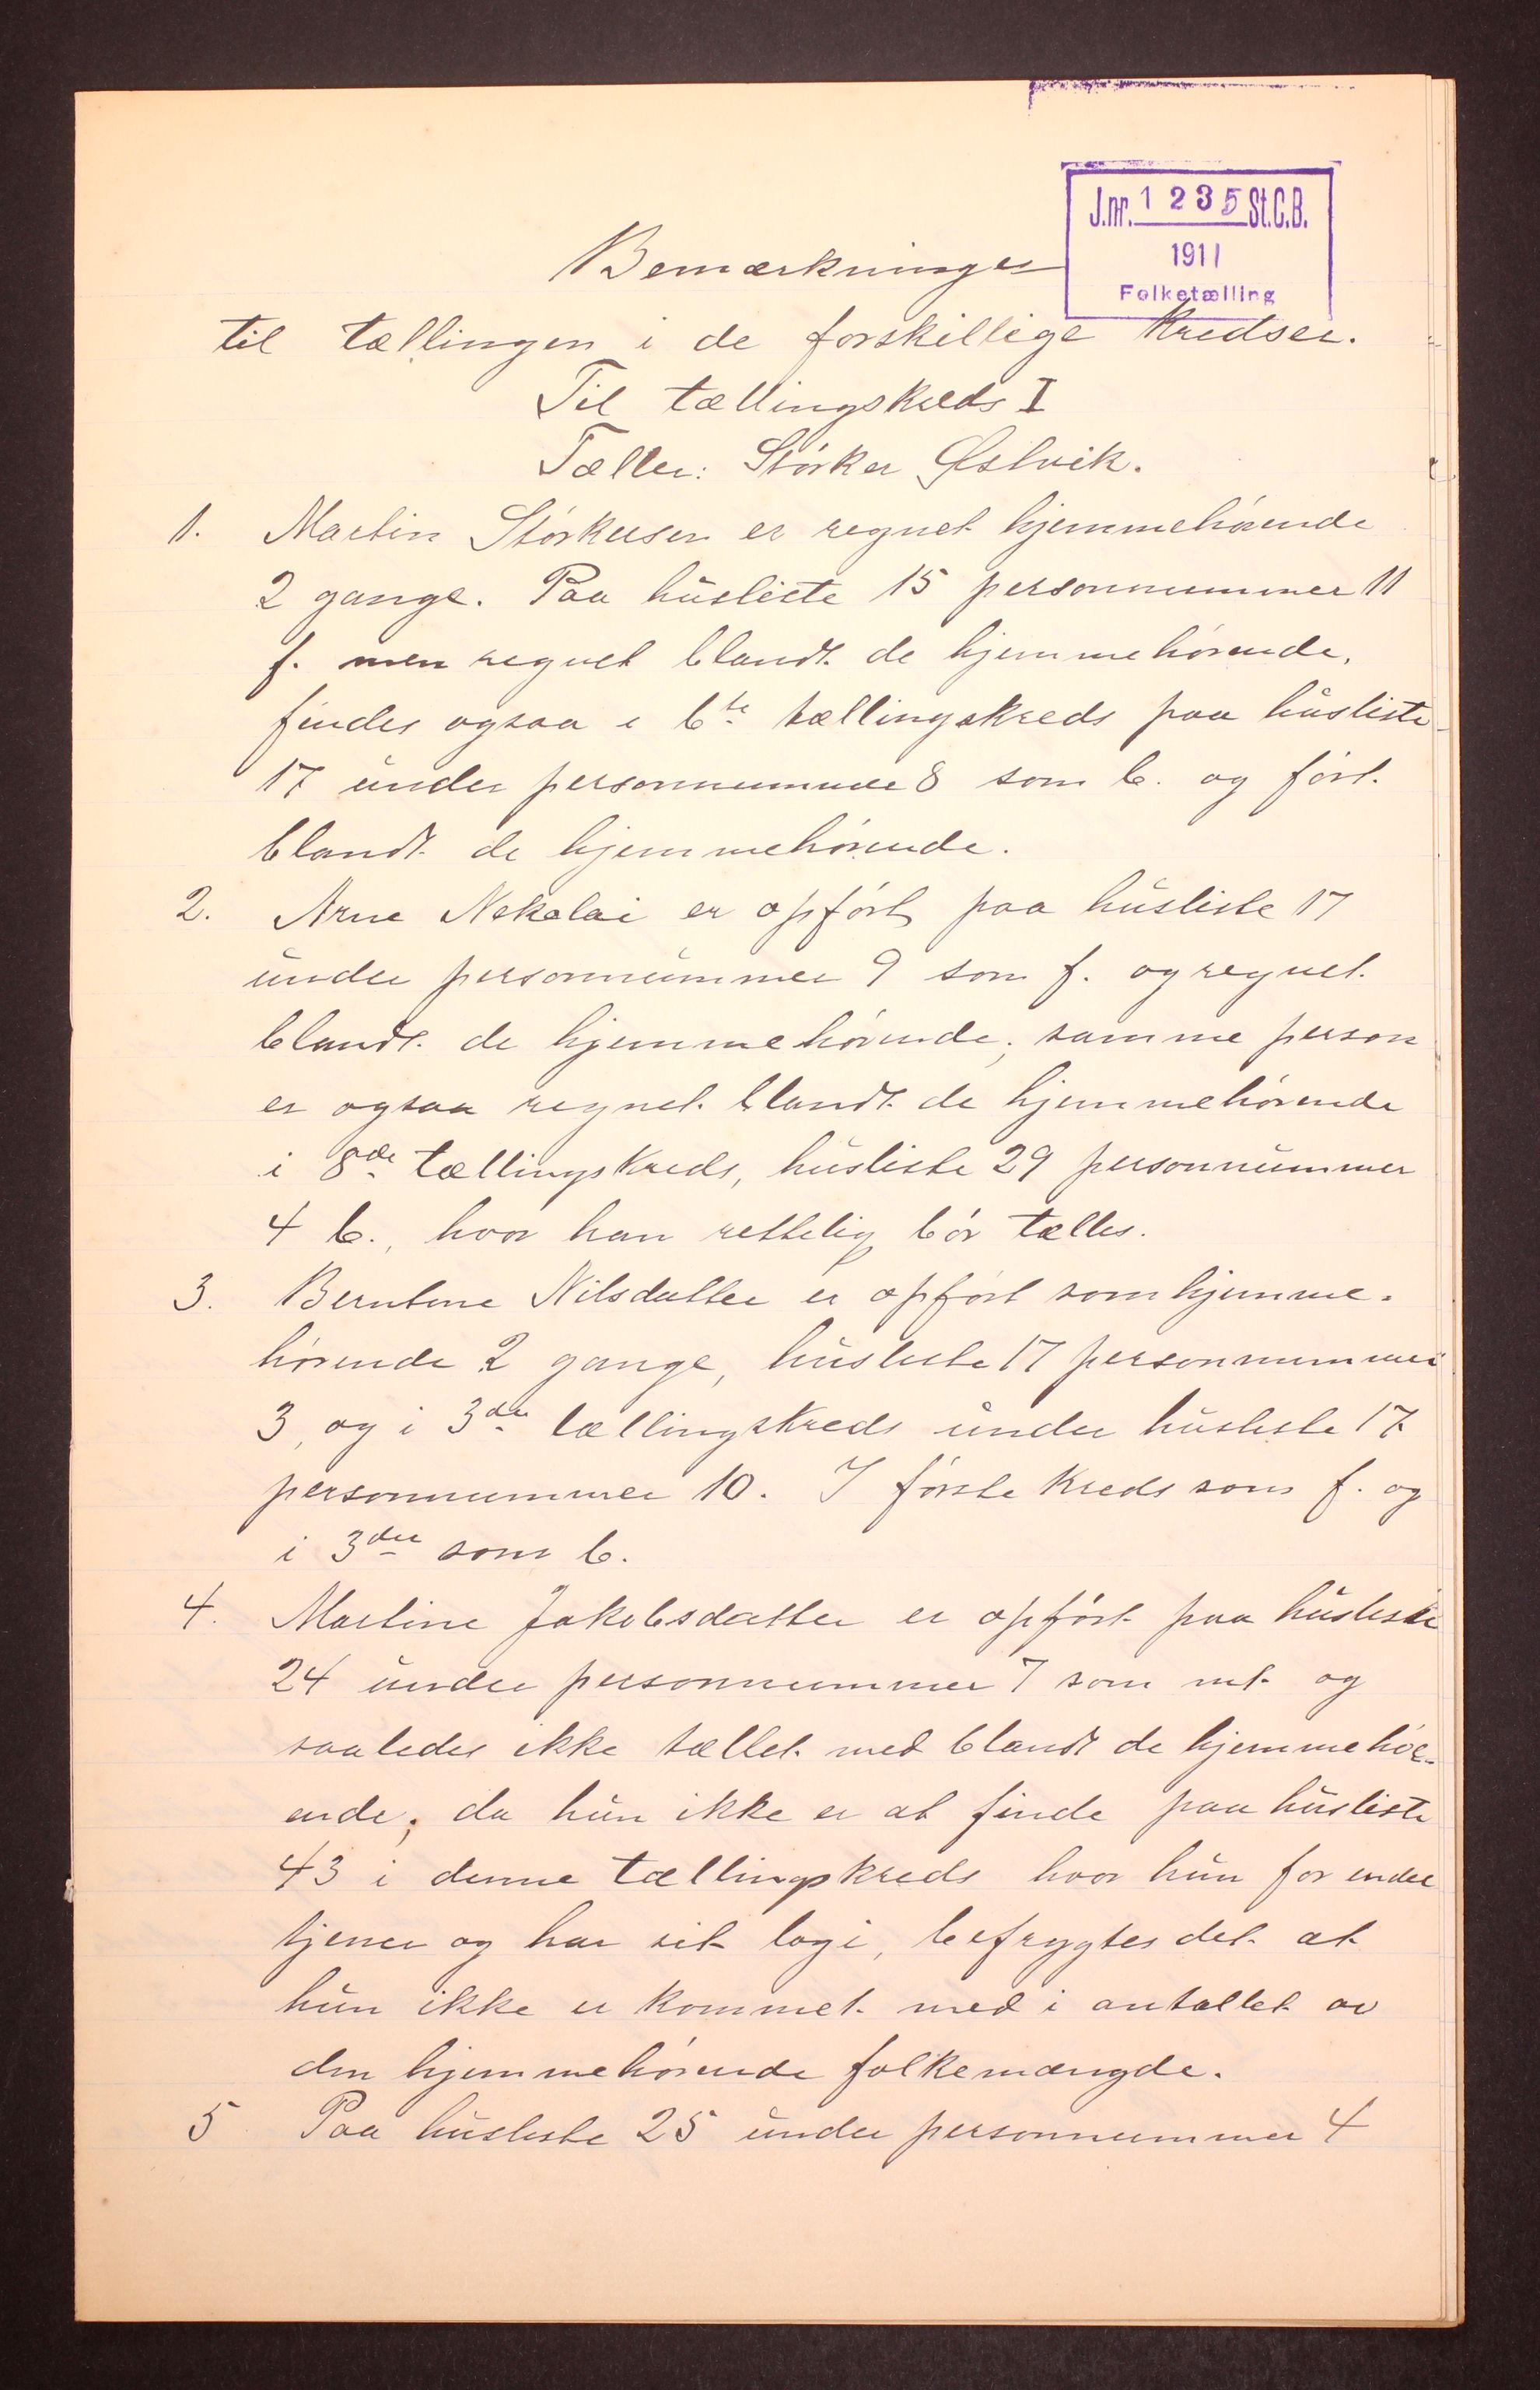 J.nr. 1235 St.C.B.
1911
Folketælling
Bemærkninger
til tællingen i de forskillige kredser.
Til tællingskreds I
Tæller: Størker Østvik.
1. Martin Størkersen er regnet hjemmehörende
2 gange. Paa husliste 15 personnummer 11
f. men regnet blandt de hjemmehörende,
findes ogsaa i 6te tællingskreds paa husliste
17 under personnummer 8 som b. og fört
blandt de hjemmehörende.
2. Arne Nekolai er opfört paa husliste 17
under personnummer 9 som f. og regnet
blandt de hjemmehörende; samme person
er ogsaa regnet blandt de hjemmehörende
i 8de tællingskreds, husliste 29 personnummer
4 b., hvor han rettelig bör tælles.
3. Berntine Nilsdatter er opfört som hjemme-
hörende 2 gange, husliste 17 personnummer
3, og i 3die tællingskreds under husliste 17
personnummer 10. I förste kreds som f. og
i 3die som b.
4. Martine Jakobsdatter er opfört paa husliste
24 under personnummer 7 som mt. og
saaledes ikke tællet med blandt de hjemmehör-
ende; da hun ikke er at finde paa husliste
43 i denne tællingskreds hvor hun for under
tjener og har sit logi, befrygtes det at
hun ikke er kommet med i antallet av
den hjemmehörende folkemængde.
5 Paa husliste 25 under personnummer 4